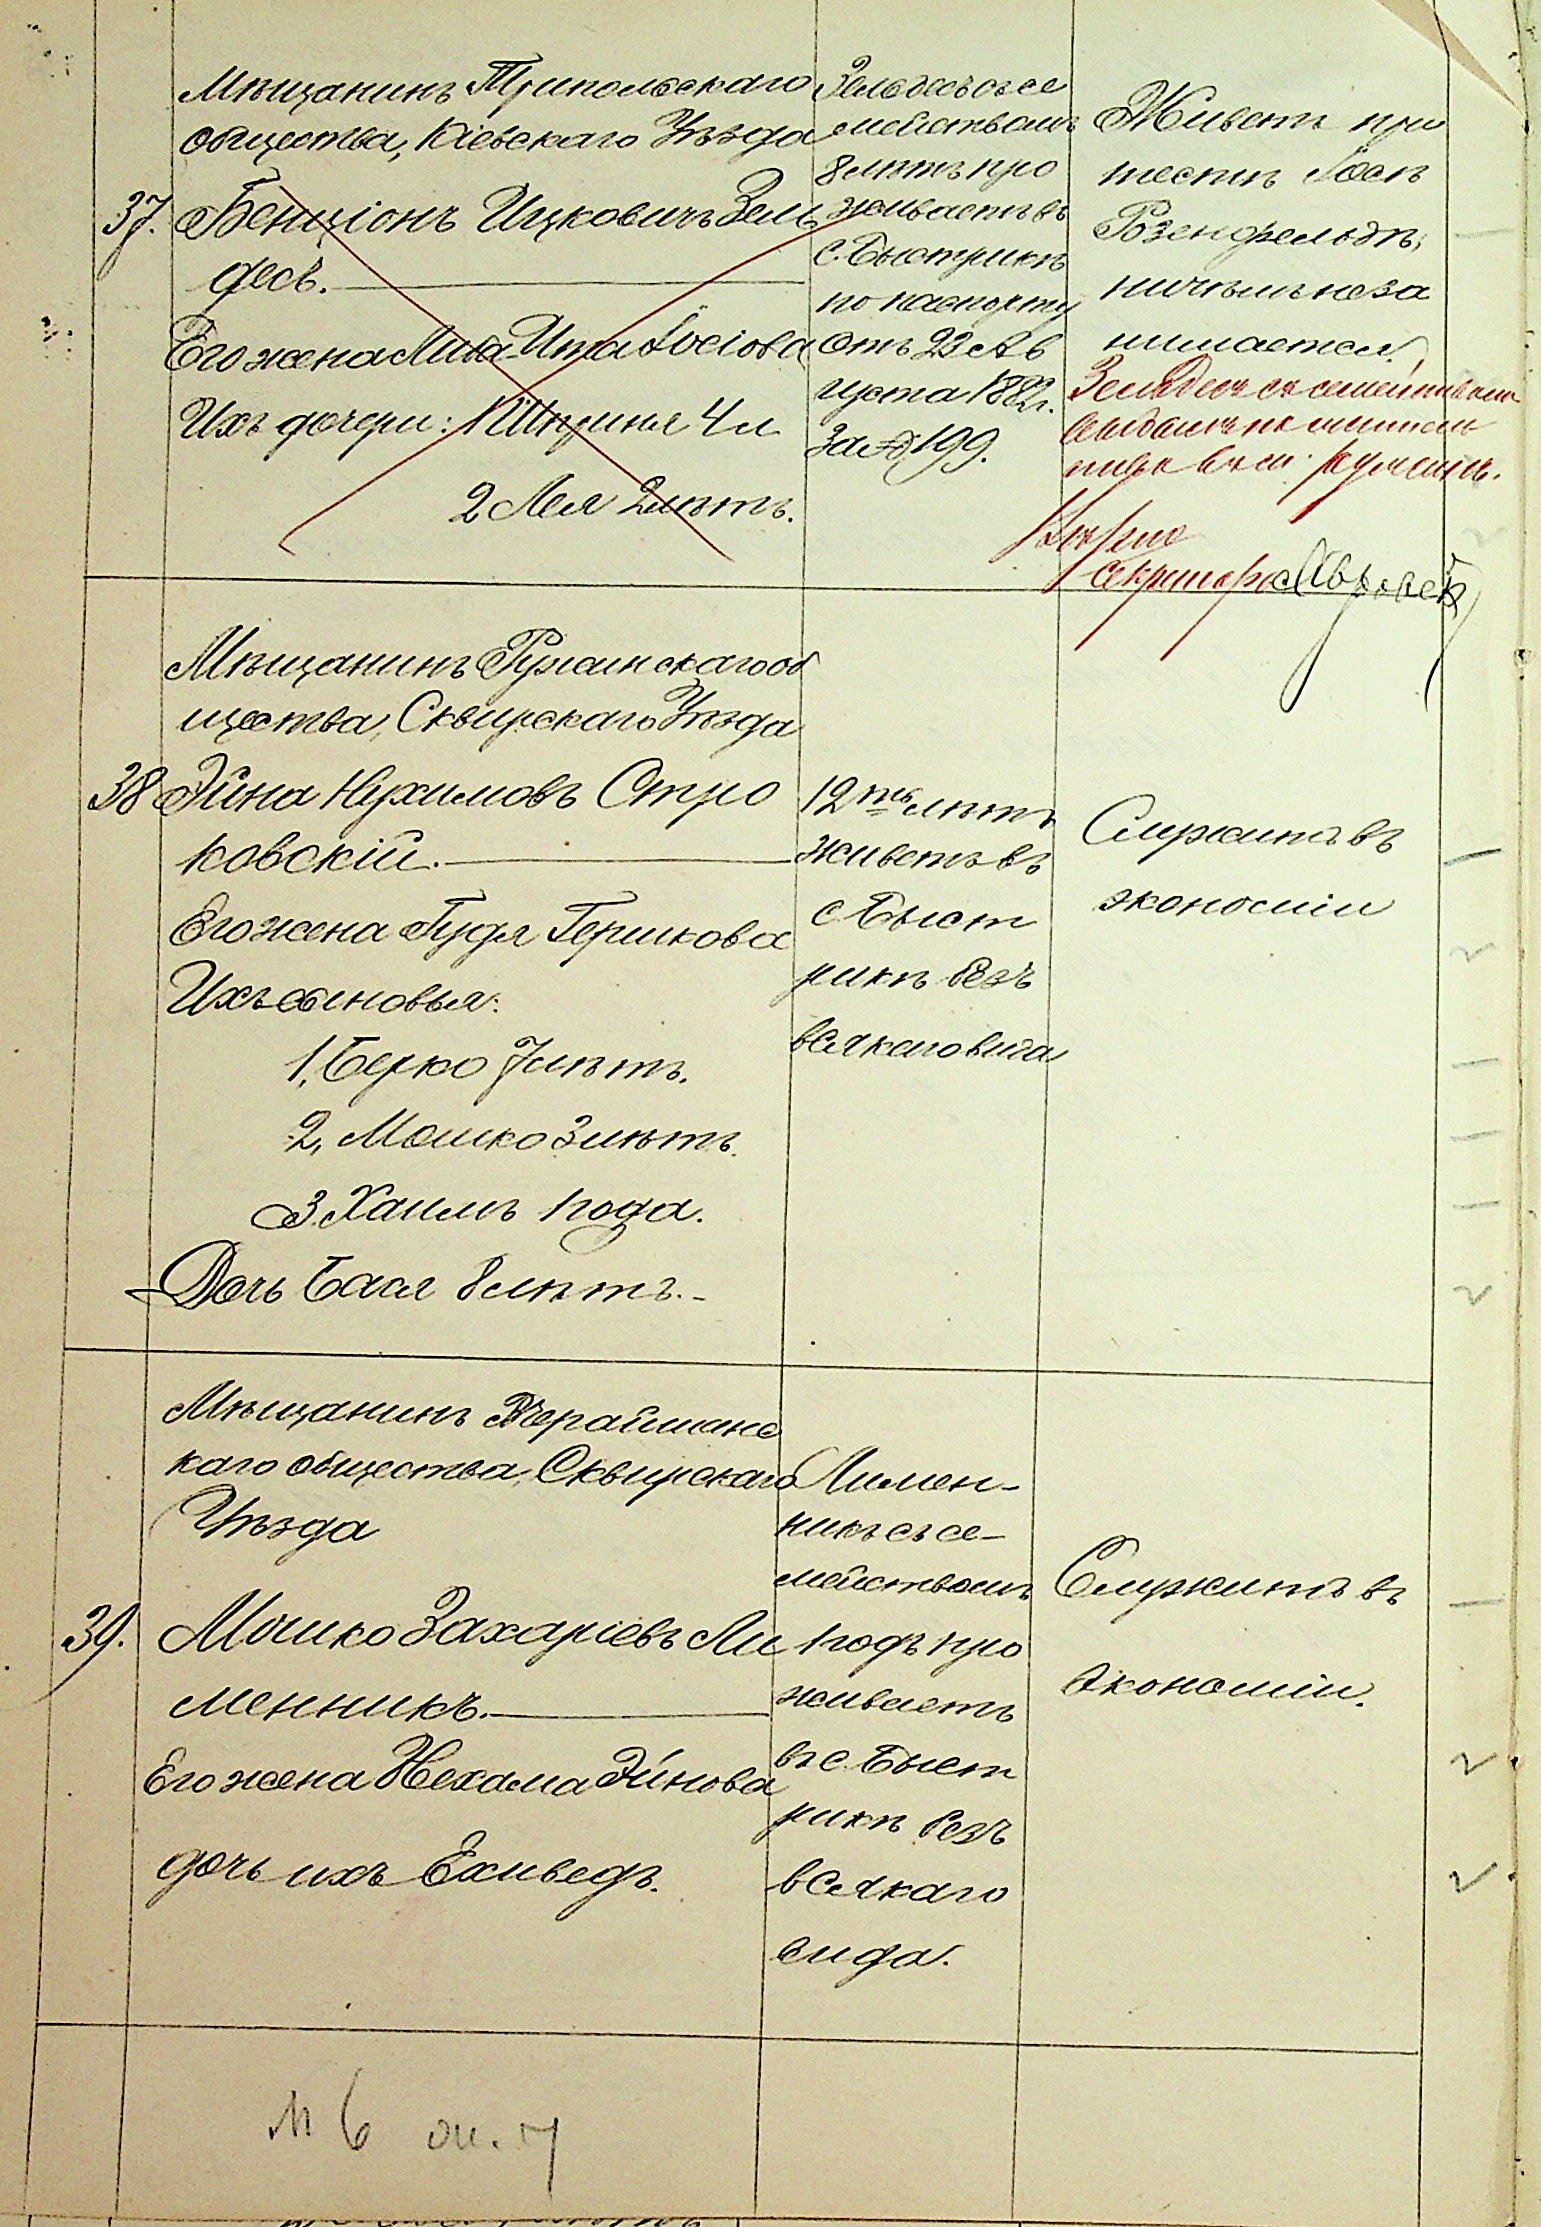 Мѣщанинъ Трипольскаго
общества, Кіевскаго Уѣзда
37. Бенціонъ Ицковичъ Зель
десъ.
Его жена Ита Іосіова
Ихъ дочери: 1 Шприня 4 л
2 Лея 2 лѣтъ.
Зельдесъ съ се
мействомъ
8 лѣтъ про
живаетъ въ
с. Быстрикѣ
по паспорту
отъ 23 Ав
густа 1882 г.
за № 199.
Живетъ при
тестѣ Іосѣ
Розенфельдѣ,
ничѣмъ не за
нимается.
Зельдесъ съ семействомъ
Вѣрно
секретарь
Мѣщанинъ Ружинскаго об
щества, Сквирскаго Уѣзда
38 Эйна Нухимовъ Стро
ковскій.
Его жена Гудля Гершкова
Ихъ сыновья:
1, Берко 7 лѣтъ.
2, Мошко 3 лѣтъ.
3. Хаимъ 1 года.
Дочь Бася 8 лѣтъ.-
12ть лѣтъ
живетъ въ
с. Быст
рикѣ безъ
всякаго вида
Служитъ въ
экономіи
Мѣщанинъ Вчерайшанс
каго общества, Сквирскаго
Уѣзда
39. Мошко Захаріевъ Ли
менникъ.
Его жена Нехама Эйнова
дочь ихъ Ехиведъ.
Лимен-
никъ съ се-
мействомъ
1 годъ про
живаетъ
въ с. Быст
рикѣ безъ
всякаго
вида.
Служитъ въ
экономіи.